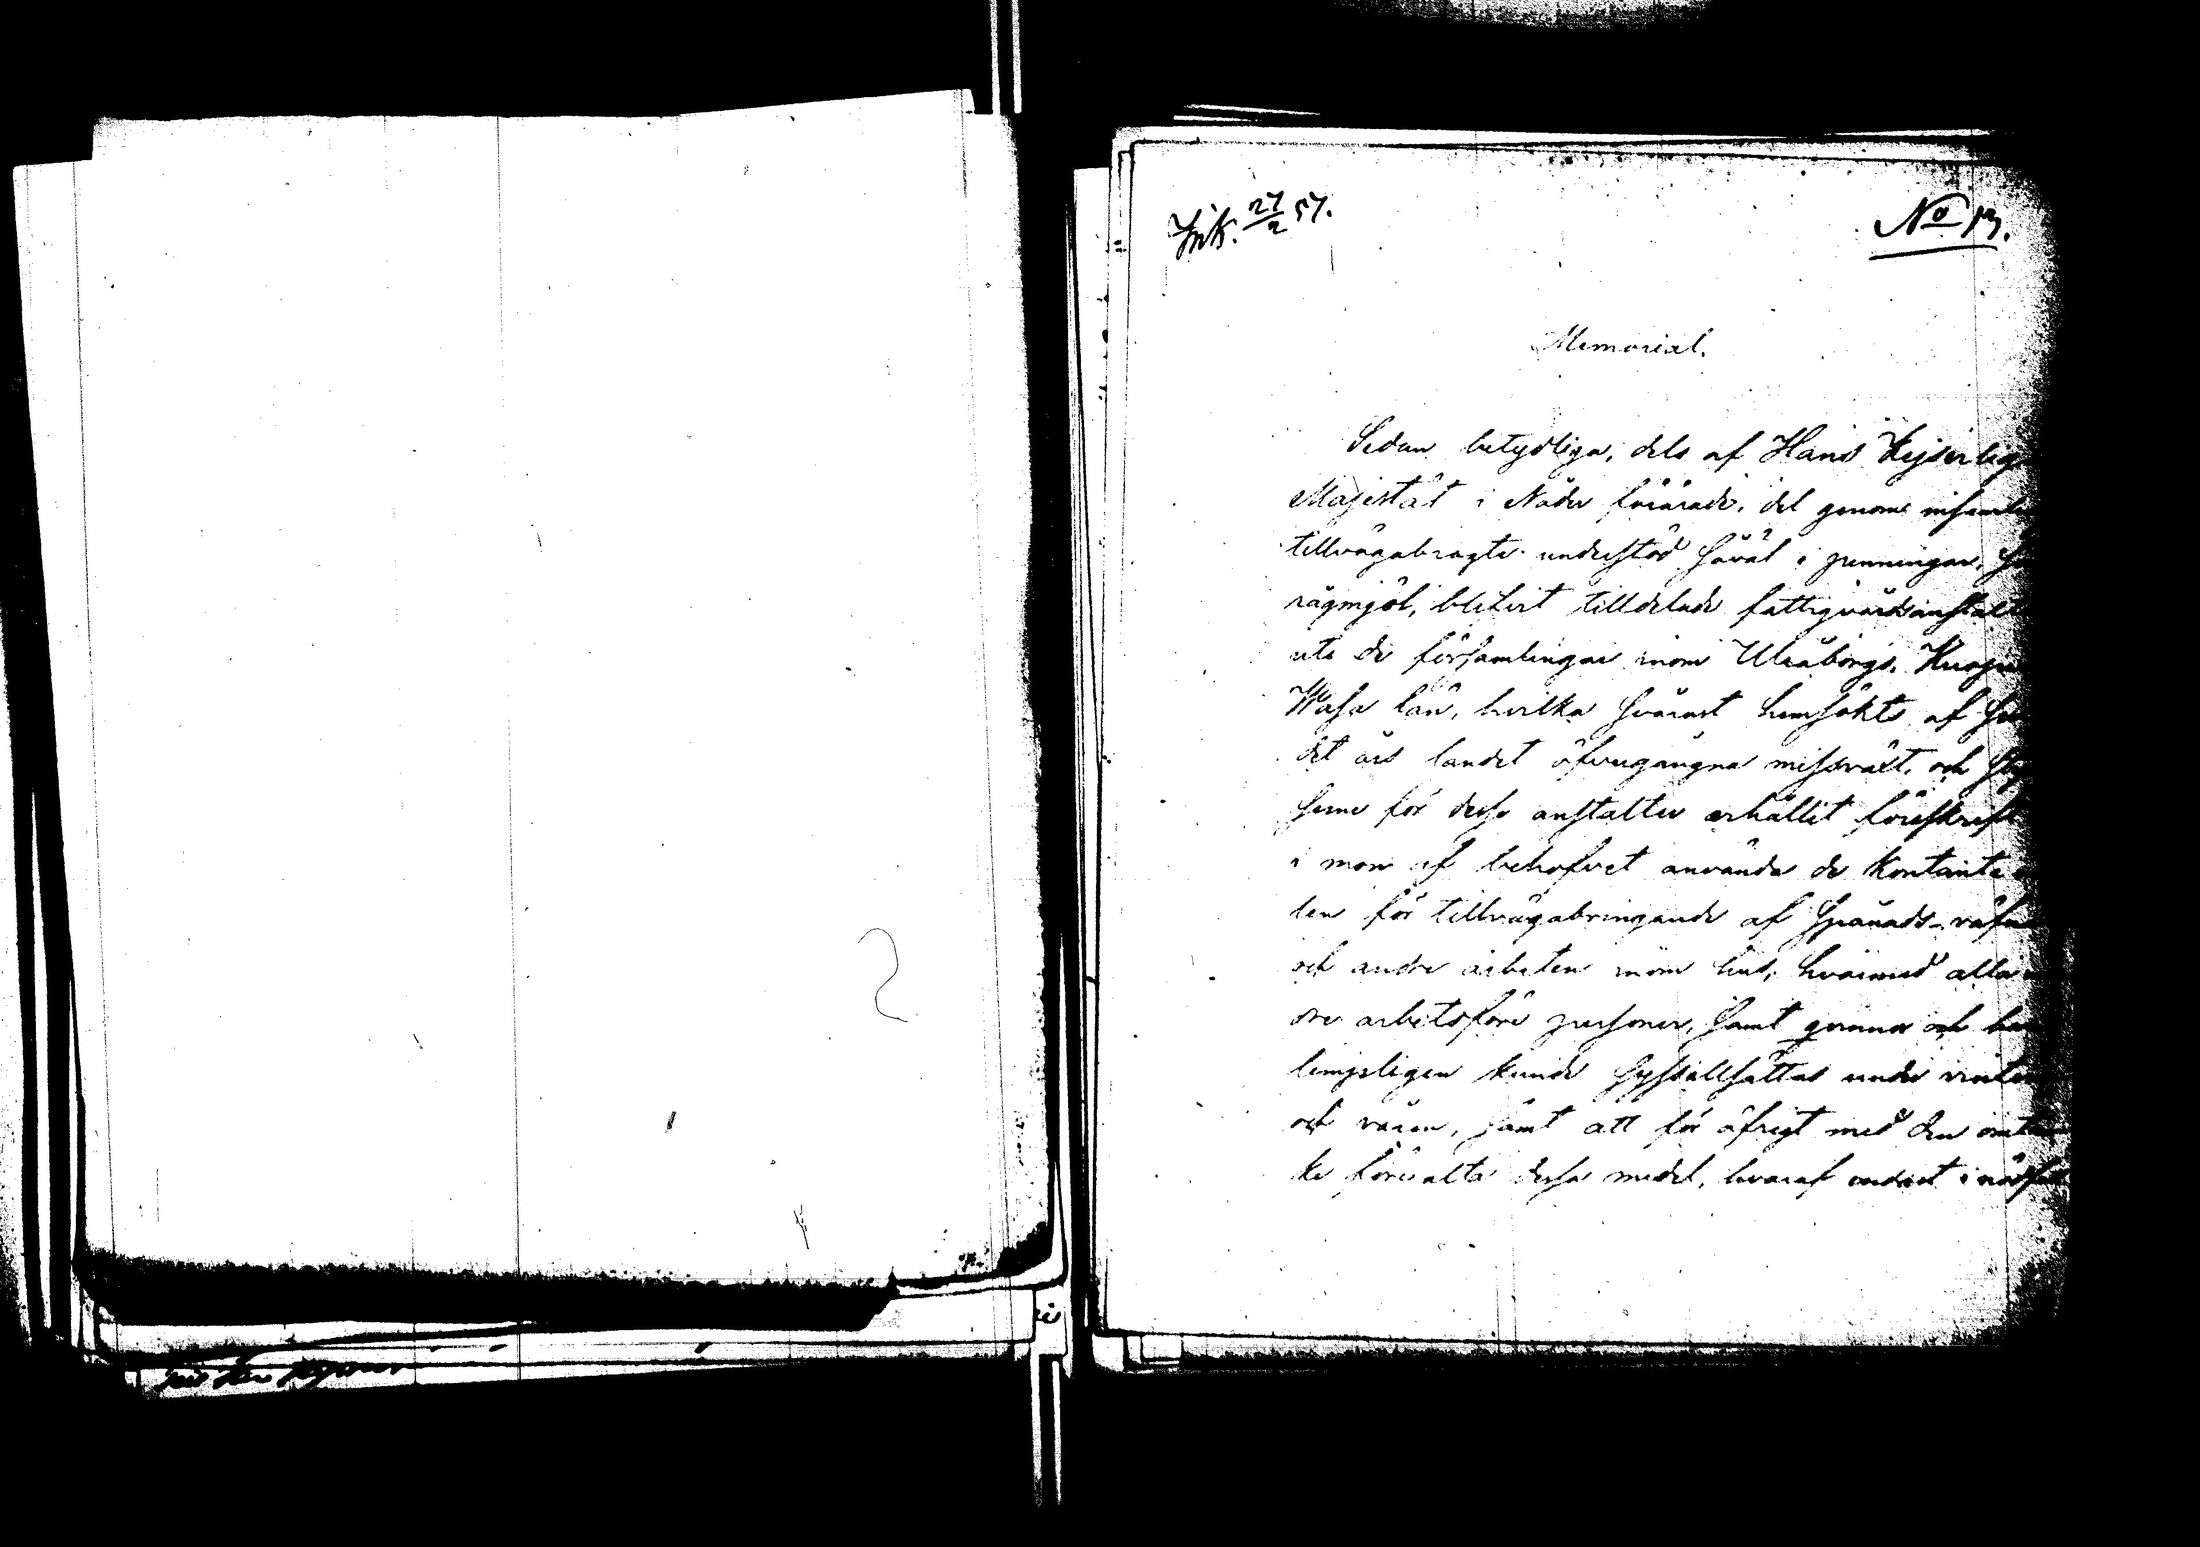 Ink. 27/2 57.
No 13.
Memorial.
Sedan betydliga, dels af Hans Kejserlig
Majestät i Nåder förärade, del genom insamli
tillvägabragte understöd såväl i penningar, 
rågmjöl, blifvit tilldelade fattigvårdsanstalt
uti de församlingar inom Uleåborgs, Kuopio
Wasa län, hvilka svårast hemsökts af
det års landet öfvergångna missväxt, och
serne för desse anstalter erhållit föreskrift
i mon af behofvet använda de kontanta
len för tillvägabringande af Spånads-
och andre arbeten inom hus, hvarmed alla
dre arbetsföre personer, samt qvinnor och bar
lempligen kunde sysselsättas under vintern
och våren, samt att för öfrigt med den omtan
ke förvalta dessa medel, hvaraf endast i nödfall